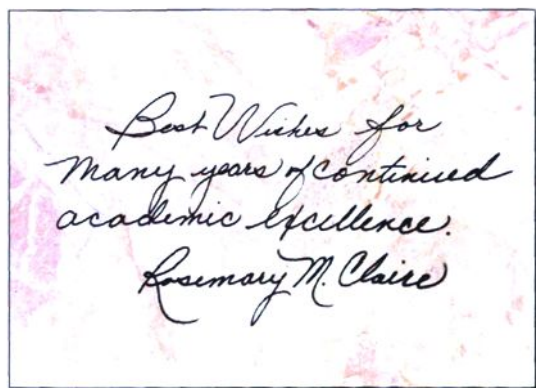 Best Wishes for
Many years of continued
academic excellence.
Rosemary M. Claire